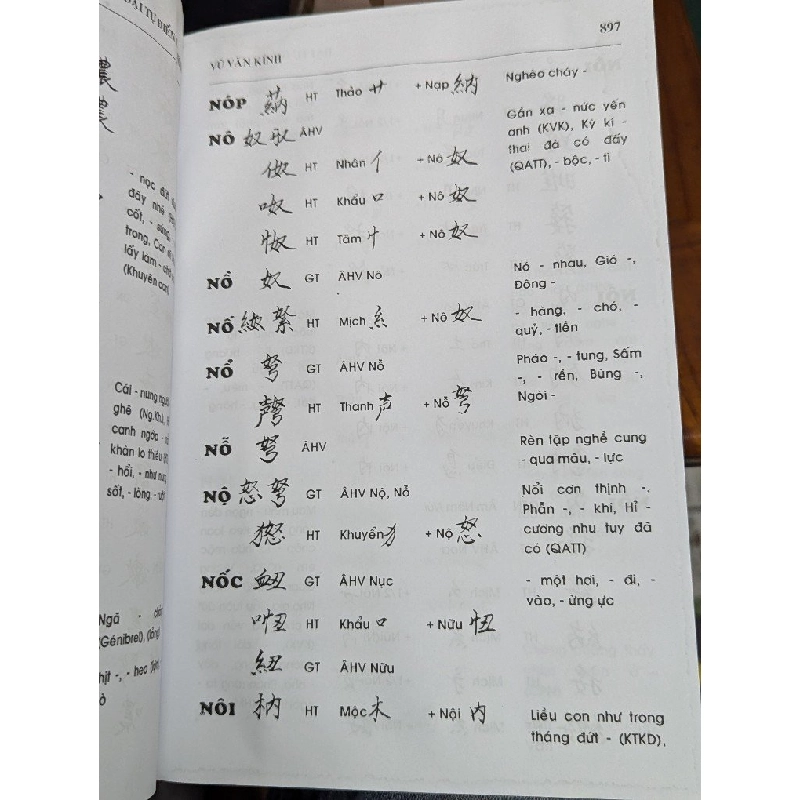 VŨ VĂN KÍNH
897
NÔP HT Thảo 艹 + Nạp 納 Nghèo cháy -
NÔ 奴 馭 ÂHV Gần xa - nức yến
anh (KVK), Kỳ kì -
HT Nhân 亻 + Nô 奴 thai đà có đấy
(QATT), - bộc, - tì
呶 HT Khẩu 口 + Nô 奴
怓 HT Tâm 忄 + Nô 奴
NỒ 奴 GT ÂHV Nô Nó - nhau, Gió -,
Đông -
NỐ HT Mịch 糹 + Nô 奴 - hàng, - chó, -
quỷ, - tiền
NỔ 弩 GT ÂHV Nỏ Pháo -, - tung, Sấm
-, - rền, Bùng -,
HT Thanh 声 + Nỏ 弩 Ngòi -
NỖ 弩 ÂHV Rèn lập nghề cung
- qua mâu, - lực
NỘ 怒 弩 GT ÂHV Nộ, Nỏ Nổi cơn thịnh -,
Phẫn -, - khí, Hỉ -
HT Khuyển 犭 + Nộ 怒 cương nhu tuy đã
có (QATT)
NỐC 衄 GT ÂHV Nục - một hơi, - đi, -
vào, - ừng ực
HT Khẩu 口 + Nữu 忸
紐 GT ÂHV Nữu
NÔI 枘 HT Mộc 木 + Nội 内 Liều con như trong
tháng đứt - (KTKD),